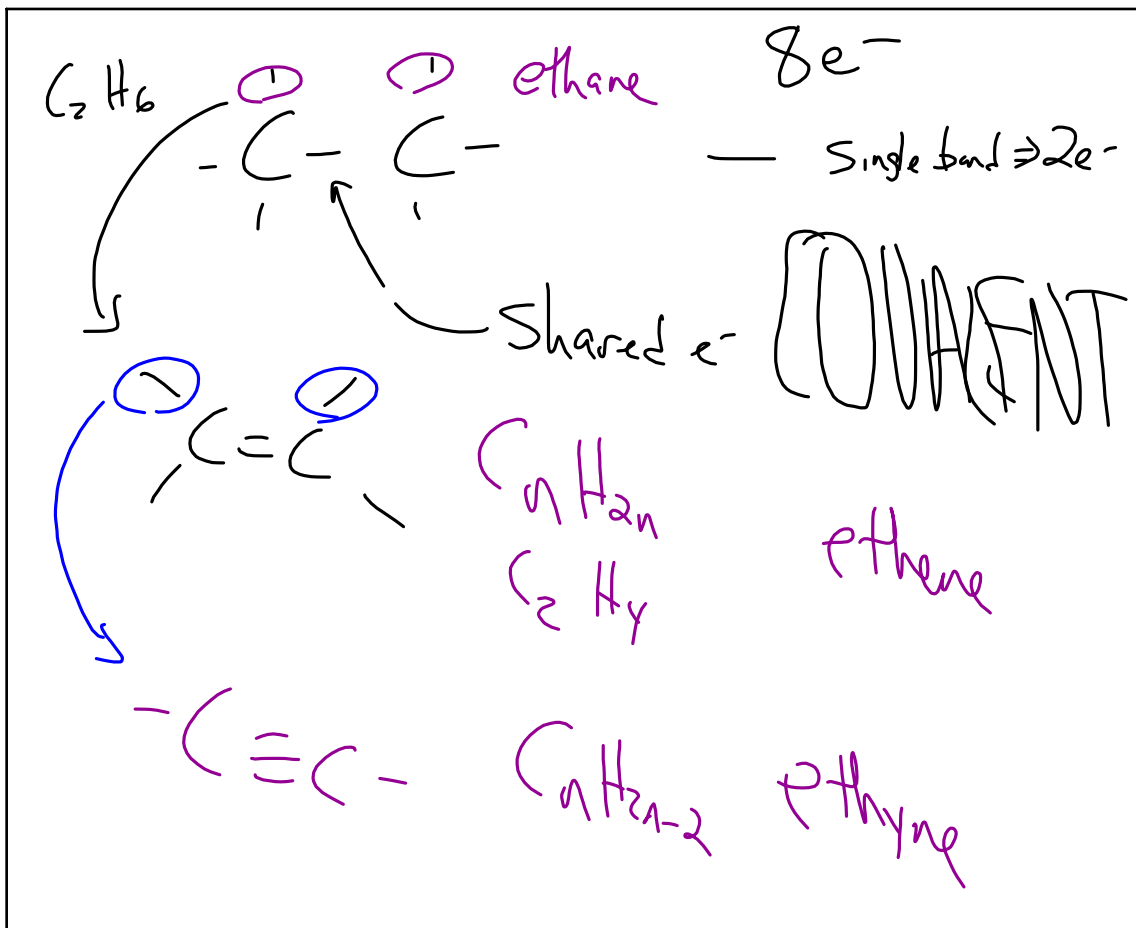 C₂H₆ ethane 8e⁻
- C - C -
— Single bond ⇒ 2e⁻
Shared e⁻ COVALENT
C = C
CₙH₂ₙ
ethene
C₂H₄
- C ≡ C - CₙH₂ₙ₋₂ ethyne